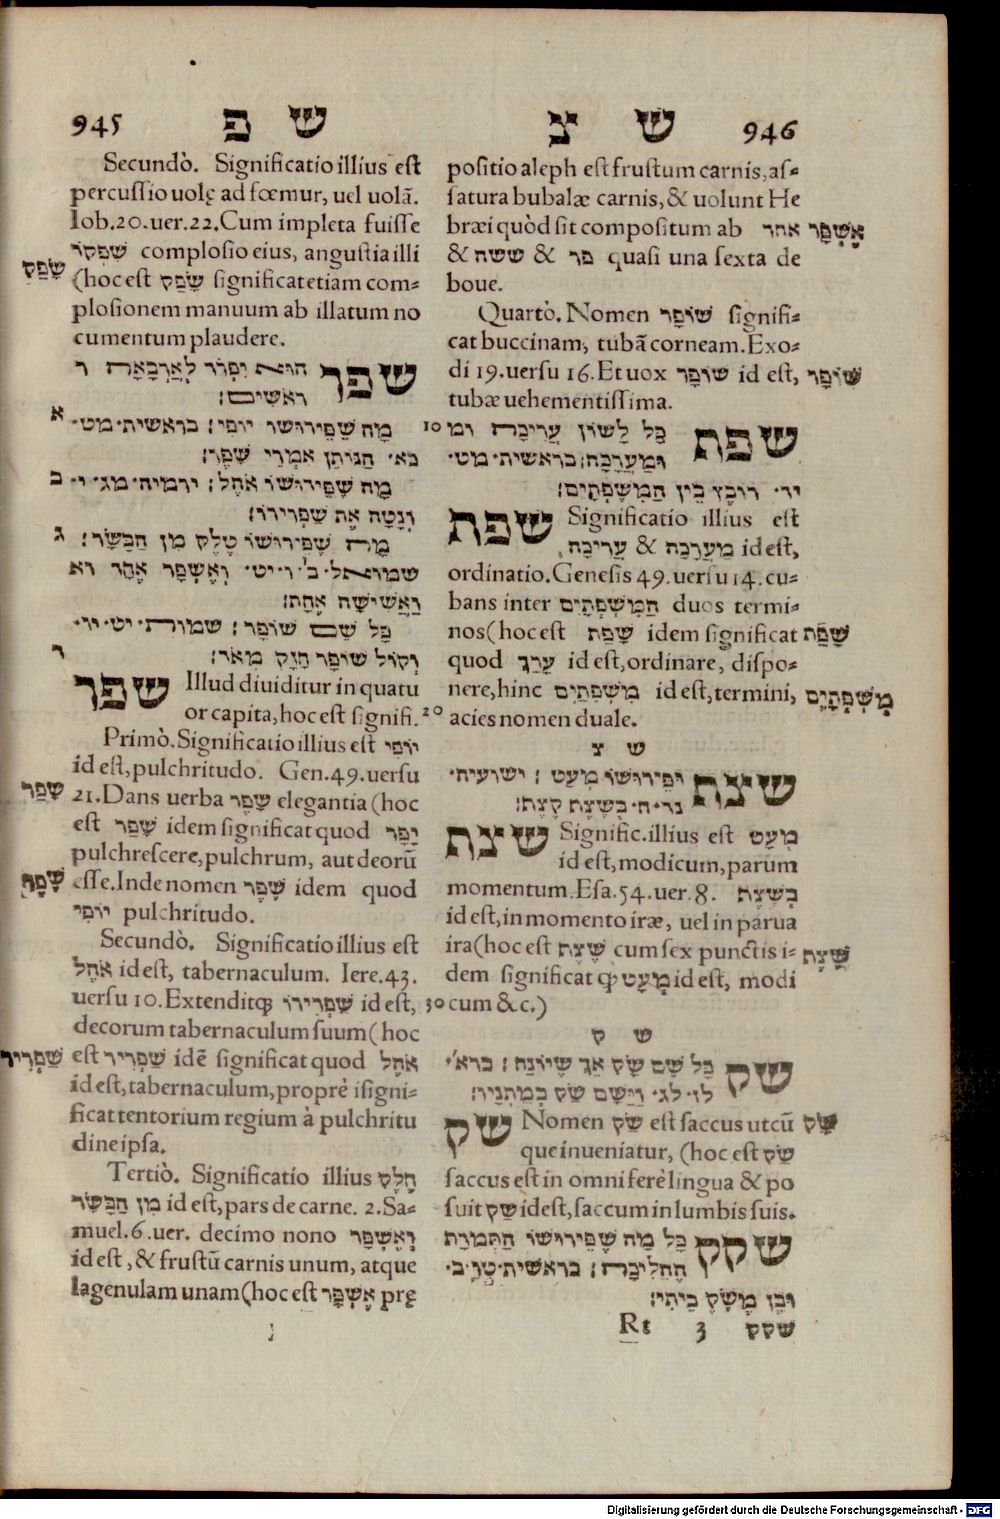 945 ש פ
Secundò. Significatio illius est
percussio uolę ad fœmur, uel uolã.
Iob.20.uer.22.Cum impleta fuisse
שִׂפְקוֹ complosio eius, angustia illi
שָׂפַק
(hoc est שָׂפַק significat etiam com-
plosionem manuum ab illatum no
cumentum plaudere.
שפר הוא יִפְרֹד לְאַרְבָּאָה ר
ראשים:
א
מָה שֶׁפֵּירוּשׁוֹ יוֹפִי: בראשית מט
כא הַנּוֹתֵן אִמְרֵי שֶׁפֶר:
ב
מָה שֶׁפֵּירוּשׁוֹ אֹהֶל: ירמיה מג י
וְנָטָה אֶת שַׁפְרִירוֹ:
ג
מָה שֶׁפֵּירוּשׁוֹ חֵלֶק מִן הַבָּשָׂר:
שמואל ב' ו יט וְאֶשְׁפָּר אֶחָד וא
וַאֲשִׁישָׁה אֶחָת:
כָּל שֵׁם שׁוֹפָר: שמות יט יו
ד
וְקוֹל שׁוֹפָר חָזָק מְאֹד:
שפר Illud diuiditur in quatu
or capita, hoc est signifi.
Primò. Significatio illius est יוֹפִי
id est, pulchritudo. Gen.49.uersu
שָׁפַר
21. Dans uerba שֶׁפֶר elegantia (hoc
est שָׁפַר idem significat quod יָפָר
pulchrescere, pulchrum, aut deorũ
esse. Inde nomen שֶׁפֶר idem quod
יוֹפִי pulchritudo.
Secundò. Significatio illius est
אֹהֶל id est, tabernaculum. Iere.43.
uersu 10. Extenditqꝫ שַׁפְרִירוֹ id est,
decorum tabernaculum suum (hoc
שַׁפְרִיר
est שַׁפְרִיר idẽ significat quod אֹהֶל
id est, tabernaculum, propré isigni-
ficat tentorium regium à pulchritu
dine ipsa.
Tertiò. Significatio illius חֵלֶק
מִן הַבָּשָׂר id est, pars de carne. 2. Sa-
muel.6.uer. decimo nono וְאֶשְׁפָּר
id est, & frustũ carnis unum, atque
lagenulam unam (hoc est אֶשְׁפָּר prę
ש צ 946
positio aleph est frustum carnis, as-
satura bubalæ carnis, & uolunt He
bræi quòd sit compositum ab אחד
אֶשְׁפָּר
& ששה & פר quasi una sexta de
boue.
Quartò. Nomen שׁוֹפָר signifi-
cat buccinam, tubã corneam. Exo-
di 19. uersu 16. Et uox שׁוֹפָר id est,
שׁוֹפָר
tubæ uehementissima.
10
שפת כָּל לָשׁוֹן עֲרִיכָה ומ
וּמַעֲרָכָה: בראשית מט
יד רוֹבֵץ בֵּין הַמִּשְׁפְּתָיִם:
שפת Significatio illius est
עֲרִיכָה & מַעֲרָכָה id est,
ordinatio. Genesis 49. uersu 14. cu-
bans inter הַמִּשְׁפְּתָיִם duos termi-
nos (hoc est שָׁפַת idem significat
שָׁפַת
quod עָרַךְ id est, ordinare, dispo-
nere, hinc מִשְׁפְּתַיִם id est, termini,
מִשְׁפְּתָיִם
20
acies nomen duale.
ש צ
שצת וּפֵירוּשׁוֹ מְעַט: ישועיה
נד ח בְּשֶׁצֶת קֶצֶת:
שצת Signific. illius est מְעַט
id est, modicum, parum
momentum. Esa. 54. uer. 8. בְּשֶׁצֶת
id est, in momento iræ, uel in parua
ira (hoc est שֶׁצֶת cum sex punctis i-
שָׁצָת
dem significat qꝫ מְעָט id est, modi
30
cum &c.)
ש ק
שק כָּל שֵׁם שָׂק אֵךְ שֶׁיוּנַח: ברא'
לז לג וַיָּשֶׂם שַׂק בְּמָתְנָיו:
שק Nomen שַׂק est saccus utcũ
שָׂק
que inueniatur, (hoc est שַׂק
saccus est in omni ferè lingua & po
suit שַׂק id est, saccum in lumbis suis.
שקק כָּל מַה שֶׁפֵּירוּשׁוֹ הַתְּמוּרַת
הַחֲלִיכָה: בראשית טו ב
וּבֶן מֶשֶׁק בֵּיתִי:
Rr 3 שקק
Digitalisierung gefördert durch die Deutsche Forschungsgemeinschaft - DFG